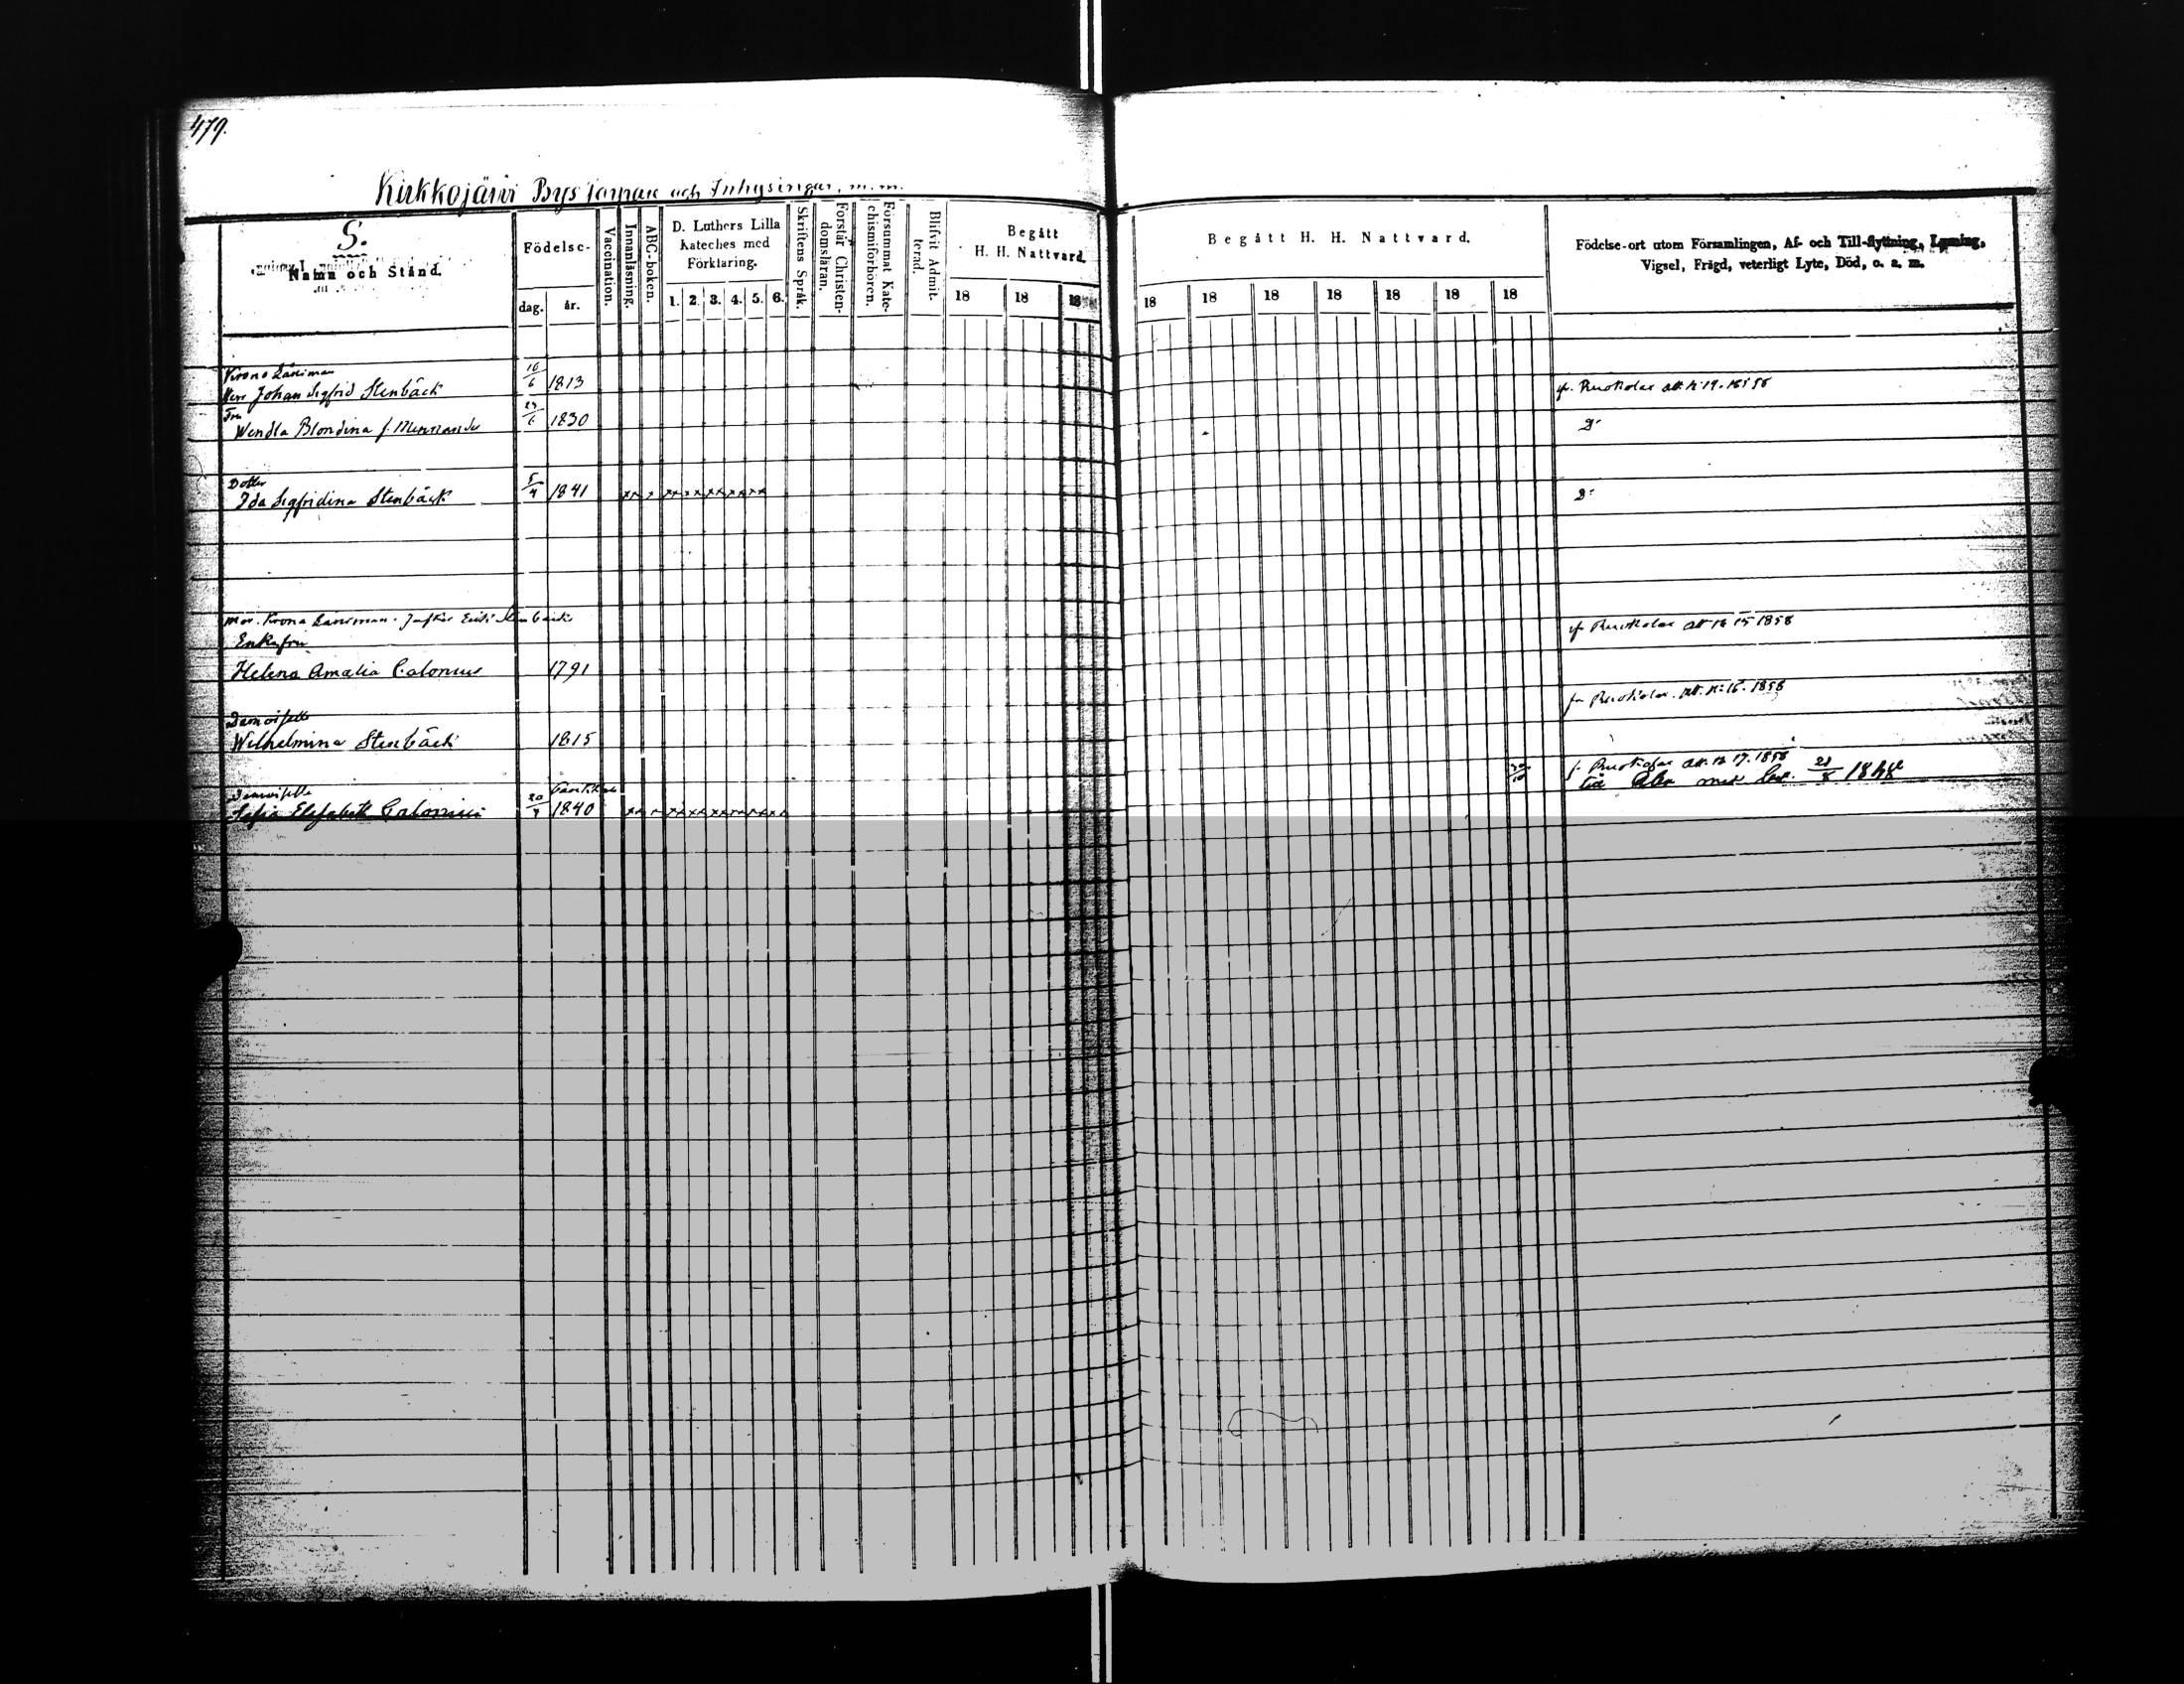 479.
Kirkkojärvi Bys Torpare och Inhysingar, m.m.
S.
Namn och Stånd.
Födelse-
dag. år.
Vaccination.
Innanläsning.
ABC-boken.
D. Luthers Lilla
Kateches med
Förklaring.
1. 2. 3. 4. 5. 6.
Skriftens Språk.
Förstår Christen-
domsläran.
Försummat Kate-
chismiförhören.
Blifvit Admit-
terad.
Begått
H. H. Nattvard.
18 18 18
Begått H. H. Nattvard.
18 18 18 18 18 18 18
Födelse-ort utom Församlingen, Af- och Till-flyttning, Lysning,
Vigsel, Frägd, veterligt Lyte, Död, o. s. m.
Krono Länsman
Herr Johan Sigfrid Stenbäck 10/6 1813 fr. Ruokolax att. N 19. 1858
Fru
Wendla Blondina f. 1830 Do
Dotter
Ida Sigfridina Stenbäck 5/4 1841 x x x x x x x x x x Do
Krono Länsman
Enkefru fr Ruokolax att N 15 1858
Helena Amalia Calonius 1791
Damoiselle fr Ruokolax. att. N: 16. 1858
Wilhelmina Stenbäck 1815
Damoiselle f. Ruokolax att. N 17. 1858
Sofia Elisabeth Calonius 20/4 1840 x x x x x x x x x x